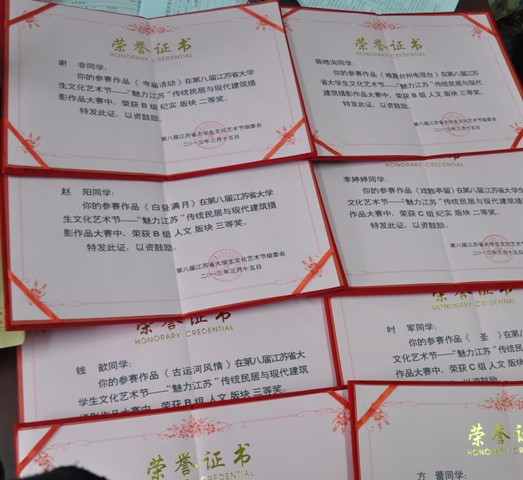 荣誉证书
HONORARY CREDENTIAL
谢 非同学:
你的参赛作品《寺庙活动》在第八届江苏省大学
生文化艺术节——“魅力江苏”传统民居与现代建筑摄
影作品大赛中，荣获B组 纪实 版块 二等奖。
特发此证，以资鼓励。
第八届江苏省大学生文化艺术节组委会
二〇一三年三月十五日
荣誉证书
HONORARY CREDENTIAL
同学:
你的参赛作品《 台州电视台》在第八届江苏
省大学生文化艺术节——“魅力江苏”传统民居与现代建筑摄
影作品大赛中，荣获B组 人文 版块 三等奖。
特发此证，以资鼓励。
第八届江苏省大学生文化艺术节组委会
二〇一三年三月十五日
赵 阳同学:
你的参赛作品《白昼满月》在第八届江苏省大学
生文化艺术节——“魅力江苏”传统民居与现代建筑摄
影作品大赛中，荣获B组 人文 版块 三等奖。
特发此证，以资鼓励。
第八届江苏省大学生文化艺术节组委会
二〇一三年三月十五日
HONORARY CREDENTIAL
李婷婷同学:
你的参赛作品《戏散
文化艺术节——“魅力江苏”传统民居与现代建筑
作品大赛中，荣获C组 纪实 版块 二等奖。
特发此证，以资鼓励。
第八届江苏省大学生文化艺术节组委
二〇一三年三月十五日
荣誉证书
HONORARY CREDENTIAL
钱 歆同学:
你的参赛作品《古运河风情》在第八届江苏省大
学生文化艺术节——“魅力江苏”传统民居与现代建筑
摄影作品大赛中，荣获B组 人文 版块 三等奖。
HONORARY CREDENTIAL
时 军同学:
你的参赛作品《 圣 》在第八届江
文化艺术节——“魅力江苏”传统民居与现
作品大赛中，荣获C组 人文 版块 三等
以资鼓励。
荣誉证书
HONORARY CREDENTIAL
荣誉证书
HONORARY CREDENTIAL
方 蕾同学: